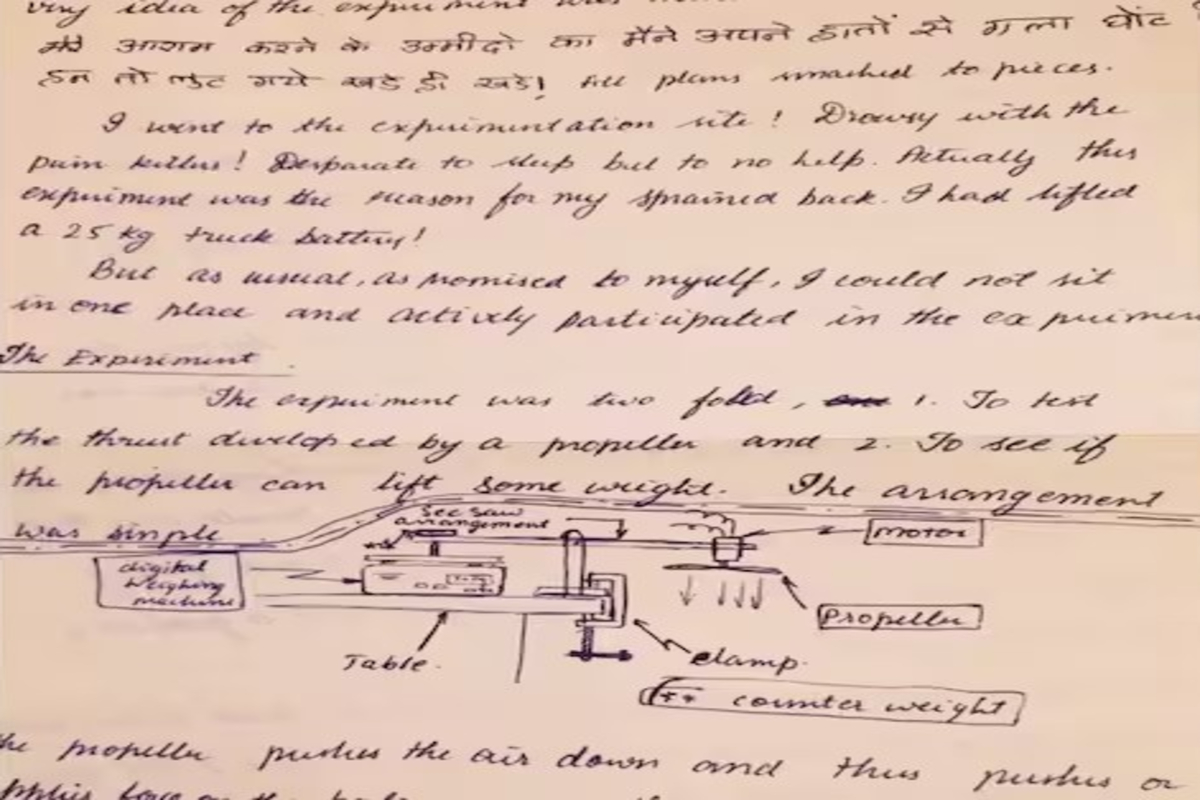 very idea of the experiment was
मेरे आराम करने के उम्मीदो का मैने अपने हातों से गला घोंट
हम तो लुट गये खडे ही खडे! All plans smashed to pieces.
I went to the experimentation site! Drowsy with the
pain killers! Desparate to sleep but to no help. Actually this
experiment was the reason for my sprained back. I had lifted
a 25 kg truck battery!
But as usual, as promised to myself, I could not sit
in one place and actively participated in the experimen
The Experiment.
The experiment was two fold, 1. To test
the thrust developed by a propeller and 2. To see if
the propeller can lift some weight. The arrangement
was simple
See saw
arrangement
motor
digital
weighing
machine
propeller
Table.
clamp.
** counter weight
the propeller pushes the air down and thus pushes or
applies force on the